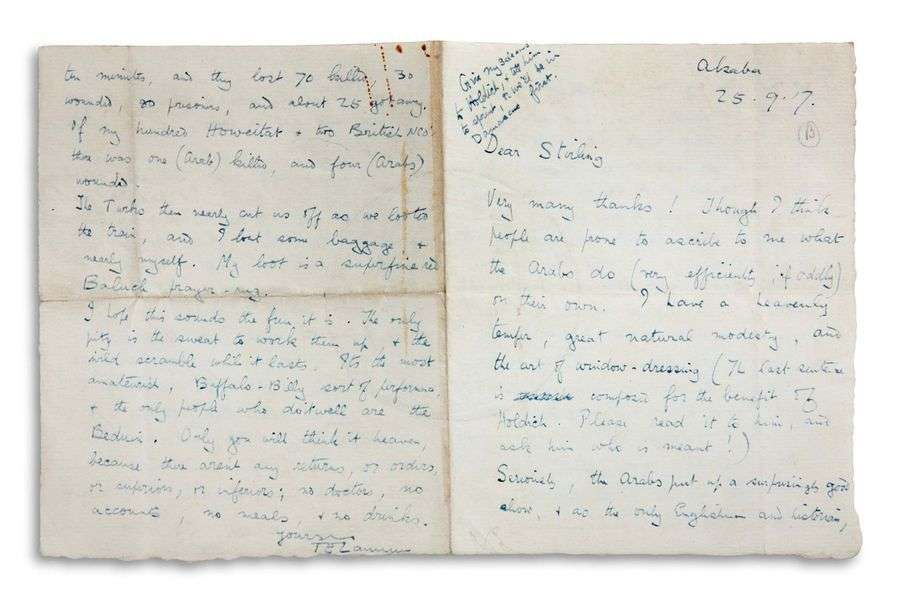 Akaba
25.9.17.
B
Give my salaams
to Holdich & tell him
to sprint, & we'll be in
Damascus first.
Dear Stirling
Very many thanks! Though I think
people are prone to ascribe to me what
the Arabs do (very efficiently, if oddly)
on their own. I have a heavenly
temper, great natural modesty, and
the art of window-dressing (The last sentence
is composed for the benefit of
Holdich. Please read it to him, and
ask him who is meant!)
Seriously, the Arabs put up a surprisingly good
show, & as the only Englishman and historian,
ten minutes, and they lost 70 killed, 30
wounded, 80 prisoners, and about 25 got away.
Of my hundred Howeitat & two British NCO's
there was one (Arab) killed, and four (Arabs)
wounded.
The Turks then nearly cut us off as we looted
the train, and I lost some baggage, &
nearly myself. My loot is a superfine red
Baluch prayer-rug.
I hope this sounds the fun it is. The only
pity is the sweat to work them up, & the
wild scramble while it lasts. It's the most
amateurish, Buffalo-Billy sort of performance,
& the only people who do it well are the
Bedouin. Only you will think it heaven,
because there aren't any returns, or orders,
or superiors, or inferiors; no doctors, no
accounts, no meals, & no drinks.
Yours
TE Lawrence